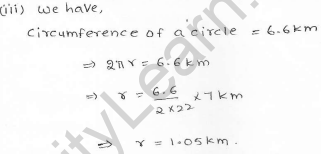 (iii) we have,
Circumference of a circle = 6.6 km
⇒ 2πr = 6.6 km
⇒ r = 6.6 / 2×22 ×7 km
⇒ r = 1.05 km.